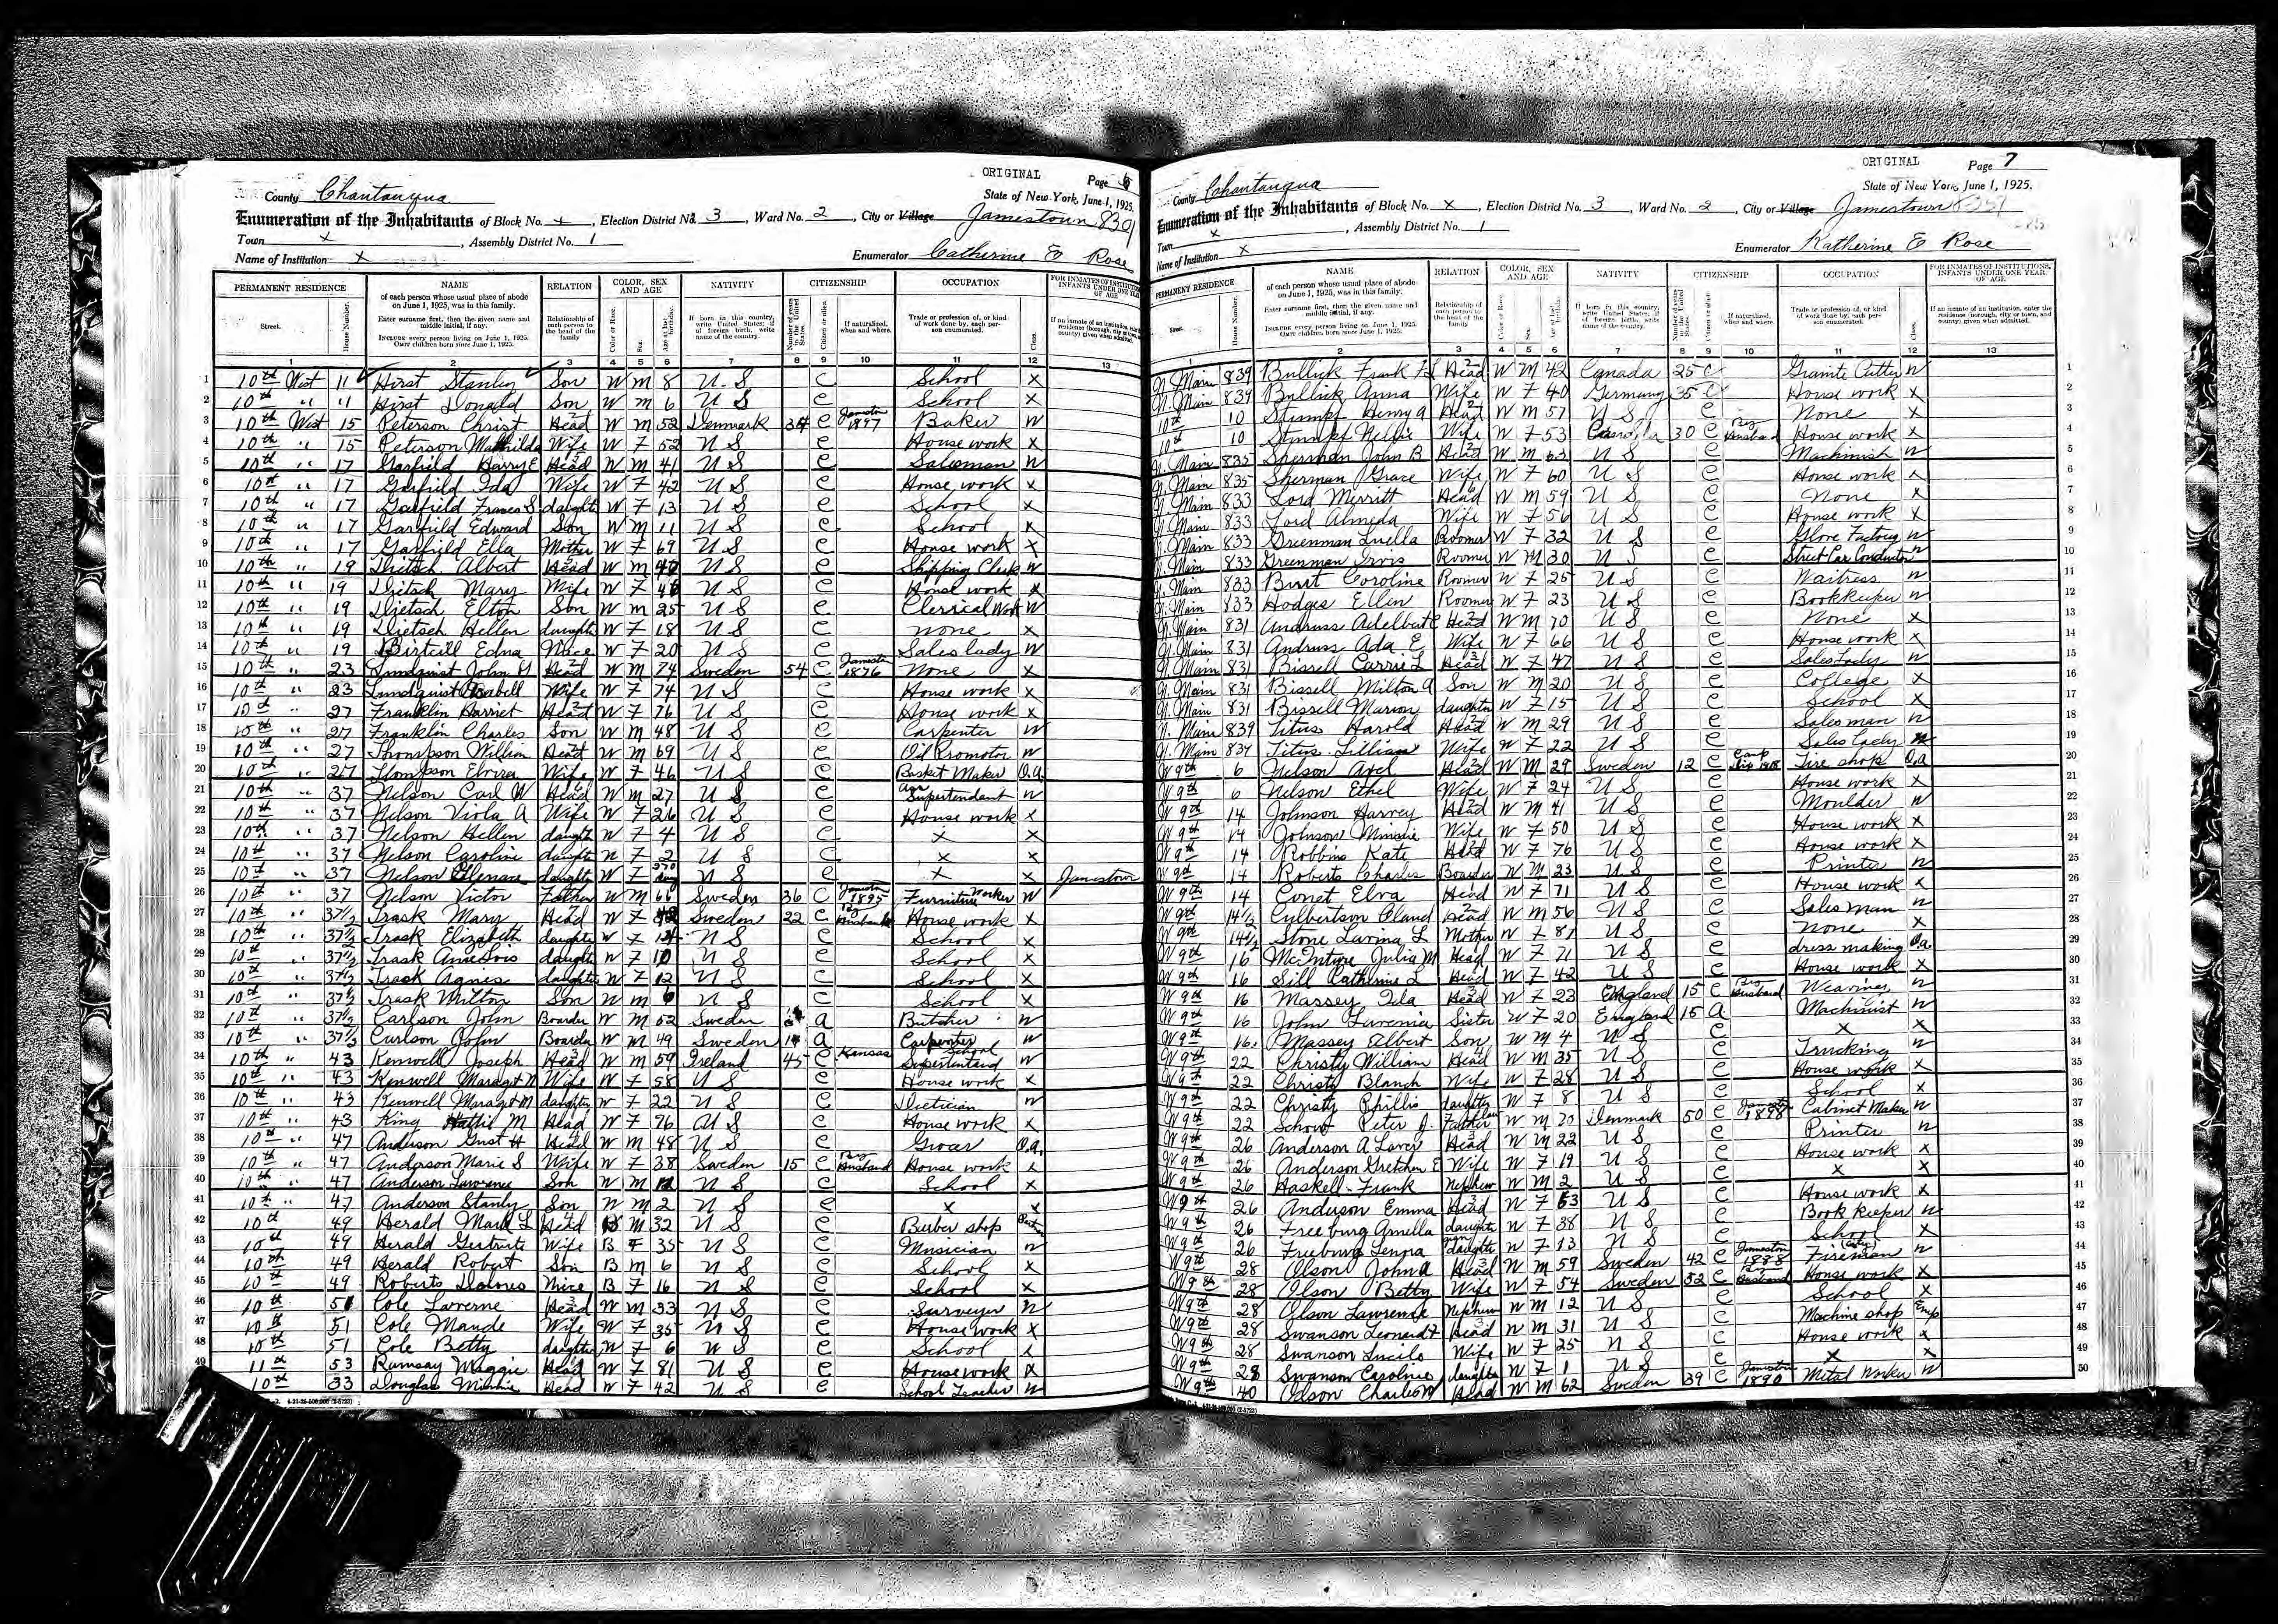 ORIGINAL Page 6
County Chautauqua State of New York, June 1, 1925.
Enumeration of the Inhabitants of Block No. x, Election District No. 3, Ward No. 2, City or Village Jamestown 8391
Town x, Assembly District No. 1
Name of Institution x Enumerator Catherine E Rose
PERMANENT RESIDENCE NAME RELATION COLOR, SEX AND AGE NATIVITY CITIZENSHIP OCCUPATION FOR INMATES OF INSTITUTIONS, INFANTS UNDER ONE YEAR OF AGE
1 10th West 11 Hirst Stanley Son W M 8 U S C School X
2 10th " 11 Hirst Donald Son W M 6 U S C School X
3 10th West 15 Peterson Christ Head W M 52 Denmark 34 C Jamestn 1897 Baker W
4 10th " 15 Peterson Mathilda Wife W F 52 U S C House work X
5 10th " 17 Garfield Harry E Head W M 41 U S C Salesman W
6 10th " 17 Garfield Ida Wife W F 42 U S C House work X
7 10th " 17 Garfield Frances S daught W F 13 U S C School X
8 10th " 17 Garfield Edward Son W M 11 U S C School X
9 10th " 17 Garfield Ella Mother W F 69 U S C House work X
10 10th " 19 Dietsch Albert Head W M U S C Shipping Clerk W
11 10th " 19 Dietsch Mary Wife W F 46 U S C House work X
12 10th " 19 Dietsch Elton Son W M 25 U S C Clerical Work W
13 10th " 19 Dietsch Hellen daughte W F 18 U S C none X
14 10th " 19 Edna Niece W F 20 U S C Sales lady W
15 10th " 23 Lundquist John H Head W M 74 Sweden 54 C Jamestn 1876 None X
16 10th " 23 Lundquist Wife W F 74 U S C House work X
17 10th " 27 Franklin Harriet Head W F 76 U S C House work X
18 10th " 27 Franklin Charles Son W M 48 U S C Carpenter W
19 10th " 27 Thompson William Head W M 69 U S C Oil Promotor W
20 10th " 27 Thompson Wife W F 46 U S C Basket Maker O.a.
21 10th " 37 Nelson Carl W Head W M 27 U S C Supertendant W
22 10th " 37 Nelson Viola A Wife W F 26 U S C House work X
23 10th " 37 Nelson Hellen daught W F 4 U S C X X
24 10th " 37 Nelson Caroline daught W F 2 U S C X X
25 10th " 37 Nelson daught W F U S C X X Jamestown
26 10th " 37 Nelson Victor Father W M 66 Sweden 36 C Jamestn 1895 Furniture Worker W
27 10th " 37 1/2 Trask Mary Head W F 42 Sweden 22 C By Husband House work X
28 10th " 37 1/2 Trask Elizabeth daught W F 14 U S C School X
29 10th " 37 1/2 Trask daught W F 10 U S C School X
30 10th " 37 1/2 Trask Agnes daughte W F 12 U S C School X
31 10th " 37 1/2 Trask Milton Son W M 6 U S C School X
32 10th " 37 1/2 Carlson John Boarder W M 52 Sweden a Butcher W
33 10th " 37 1/2 Carlson John Boarder W M 49 Sweden a Carpenter W
34 10th " 43 Kenwell Joseph Head W M 59 Ireland 45 C Kansas School Supertentand W
35 10th " 43 Kenwell Maragrt M Wife W F 58 U S C House work X
36 10th " 43 Kenwell Maragrt M daughty W F 22 U S C Dietician W
37 10th " 43 King Hattie M Head W F 76 U S C House work X
38 10th " 47 Anderson Gust H Head W M 48 U S C Grocer O.a.
39 10th " 47 Anderson Marie S Wife W F 38 Sweden 15 C By Husband House work X
40 10th " 47 Anderson Lawrence Son W M 12 U S C School X
41 10th " 47 Anderson Stanly Son W M 2 U S C X X
42 10th 49 Herald Mark L Head B M 32 U S C Barber shop
43 10th 49 Herald Gertrute Wife B F 35 U S C Musician W
44 10th 49 Herald Robert Son B M 6 U S C School X
45 10th 49 Roberts Dolores Niece B F 16 U S C School X
46 10th 51 Cole Laverne Head W M 33 U S C Surveyer W
47 10th 51 Cole Maude Wife W F 35 U S C House work X
48 10th 51 Cole Betty daughter W F 6 U S C School X
49 11th 53 Ramsay Maggie Head W F 81 U S C House work X
10th 33 Douglas Minnie Head W F 42 U S C School Teacher W
ORIGINAL Page 7
County Chautauqua State of New York, June 1, 1925.
Enumeration of the Inhabitants of Block No. x, Election District No. 3, Ward No. 2, City or Village Jamestown
Town x, Assembly District No. 1
Name of Institution x Enumerator Katherine E Rose
PERMANENT RESIDENCE NAME RELATION COLOR, SEX AND AGE NATIVITY CITIZENSHIP OCCUPATION FOR INMATES OF INSTITUTIONS, INFANTS UNDER ONE YEAR OF AGE
N. Main 839 Bullick Frank H Head W M 42 Canada 25 C Granite Cutter W 1
N. Main 839 Bullick Anna Wife W F 40 Germany 35 C House work X 2
10th 10 Stumpf Henry A Head W M 57 U S C None X 3
10th 10 Stumpf Nellie Wife W F 53 Canada 30 C By Husband House work X 4
N. Main 835 Sherman John B Head W M 63 U S C Machinist W 5
N. Main 835 Sherman Grace Wife W F 60 U S C House work X 6
N. Main 833 Lord Merritt Head W M 59 U S C None X 7
N. Main 833 Lord Almeda Wife W F 56 U S C House work X 8
N. Main 833 Greenman Luella Roomer W F 32 U S C Glove Factory W 9
N. Main 833 Greenman Irvis Roomer W M 30 U S C Street Car Conductor W 10
N. Main 833 Burt Caroline Roomer W F 25 U S C Waitress W 11
N. Main 833 Hodges Ellen Roomer W F 23 U S C Bookkeeper W 12
N. Main 831 Andruss Adelbert C Head W M 70 U S C None X 13
N. Main 831 Andruss Ada E Wife W F 66 U S C House work X 14
N. Main 831 Bissell Carrie L Head W F 47 U S C Sales Lady W 15
N. Main 831 Bissell Milton A Son W M 20 U S C College X 16
N. Main 831 Bissell Marion daughter W F 15 U S C School X 17
N. Main 839 Titus Harold Head W M 29 U S C Salesman W 18
N. Main 839 Titus Lillian Wife W F 22 U S C Sales lady W 19
W 9th 6 Nelson Axel Head W M 29 Sweden 12 C Camp 1918 Tire shop O.a 20
W 9th 6 Nelson Ethel Wife W F 24 U S C House work X 21
W 9th 14 Johnson Harvey Head W M 41 U S C Moulder W 22
W 9th 14 Johnson Minnie Wife W F 50 U S C House work X 23
W 9th 14 Robbins Kate Head W F 76 U S C House work X 24
W 9th 14 Roberts Charles Boarder W M 23 U S C Printer W 25
W 9th 14 Conet Elva Head W F 71 U S C House work X 26
W 9th 14 1/2 Culbertson Cland Head W M 56 U S C Sales man W 27
W 9th 14 1/2 Stone Lavina L Mother W F 81 U S C None X 28
W 9th 16 McIntyre Julia M Head W F 71 U S C dress making O.a 29
W 9th 16 Sill Catherine L Head W F 42 U S C House work X 30
W 9th 16 Massey Ila Head W F 23 England 15 C By Husband Weaving W 31
W 9th 16 John Sister W F 20 England 15 A Machinist W 32
W 9th 16 Massey Albert Son W M 4 U S C X X 33
W 9th 22 Christy William Head W M 35 U S C Trucking W 34
W 9th 22 Christy Blanch Wife W F 28 U S C House work X 35
W 9th 22 Christy Phillis daughter W F 8 U S C School X 36
W 9th 22 Schow Peter J. Father W M 70 Denmark 50 C Jamestn 1898 Cabinet Maker W 37
W 9th 26 Anderson A Laver Head W M 22 U S C Printer W 38
W 9th 26 Anderson Gretchen E Wife W F 19 U S C House work X 39
W 9th 26 Haskell Frank Nephew W M 2 U S C X X 40
W 9th 26 Anderson Emma Head W F 63 U S C House work X 41
W 9th 26 Freeburg Arnella daughte W F 38 U S C Book Keeper W 42
W 9th 26 Freeburg daughte W F 13 U S C School X 43
W 9th 28 Olson John A Head W M 59 Sweden 42 C Jamestn 1888 Fireman (City) W 44
W 9th 28 Olson Betty Wife W F 54 Sweden 32 C Husband House work X 45
W 9th 28 Olson Lawrence Nephew W M 12 U S C School X 46
W 9th 28 Swanson Leonard F Head W M 31 U S C Machine shop Emp 47
W 9th 28 Swanson Lucile Wife W F 25 U S C House work X 48
W 9th 28 Swanson Caroline daughter W F 1 U S C X X 49
W 9th 40 Olson Charles W Head W M 62 Sweden 39 C Jamestn 1890 Metal Worker W 50